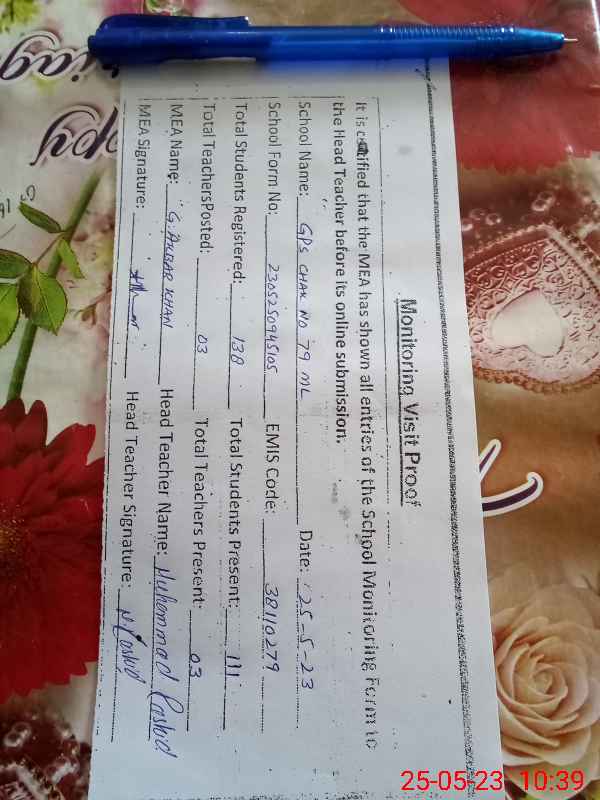 Monitoring Visit Proof
It is certified that the MEA has shown all entries of the School Monitoring Form to
the Head Teacher before its online submission.
School Name: GPS CHAK NO 79 ML Date: 25-5-23
School Form No: 2305250945105 EMIS Code: 38110279
Total Students Registered: 138 Total Students Present: 111
Total TeachersPosted: 03 Total Teachers Present: 03
MEA Name: G. AKBAR KHAN Head Teacher Name: Muhammad Rashid
MEA Signature: Head Teacher Signature: M Rashid
25-05-23 10:39